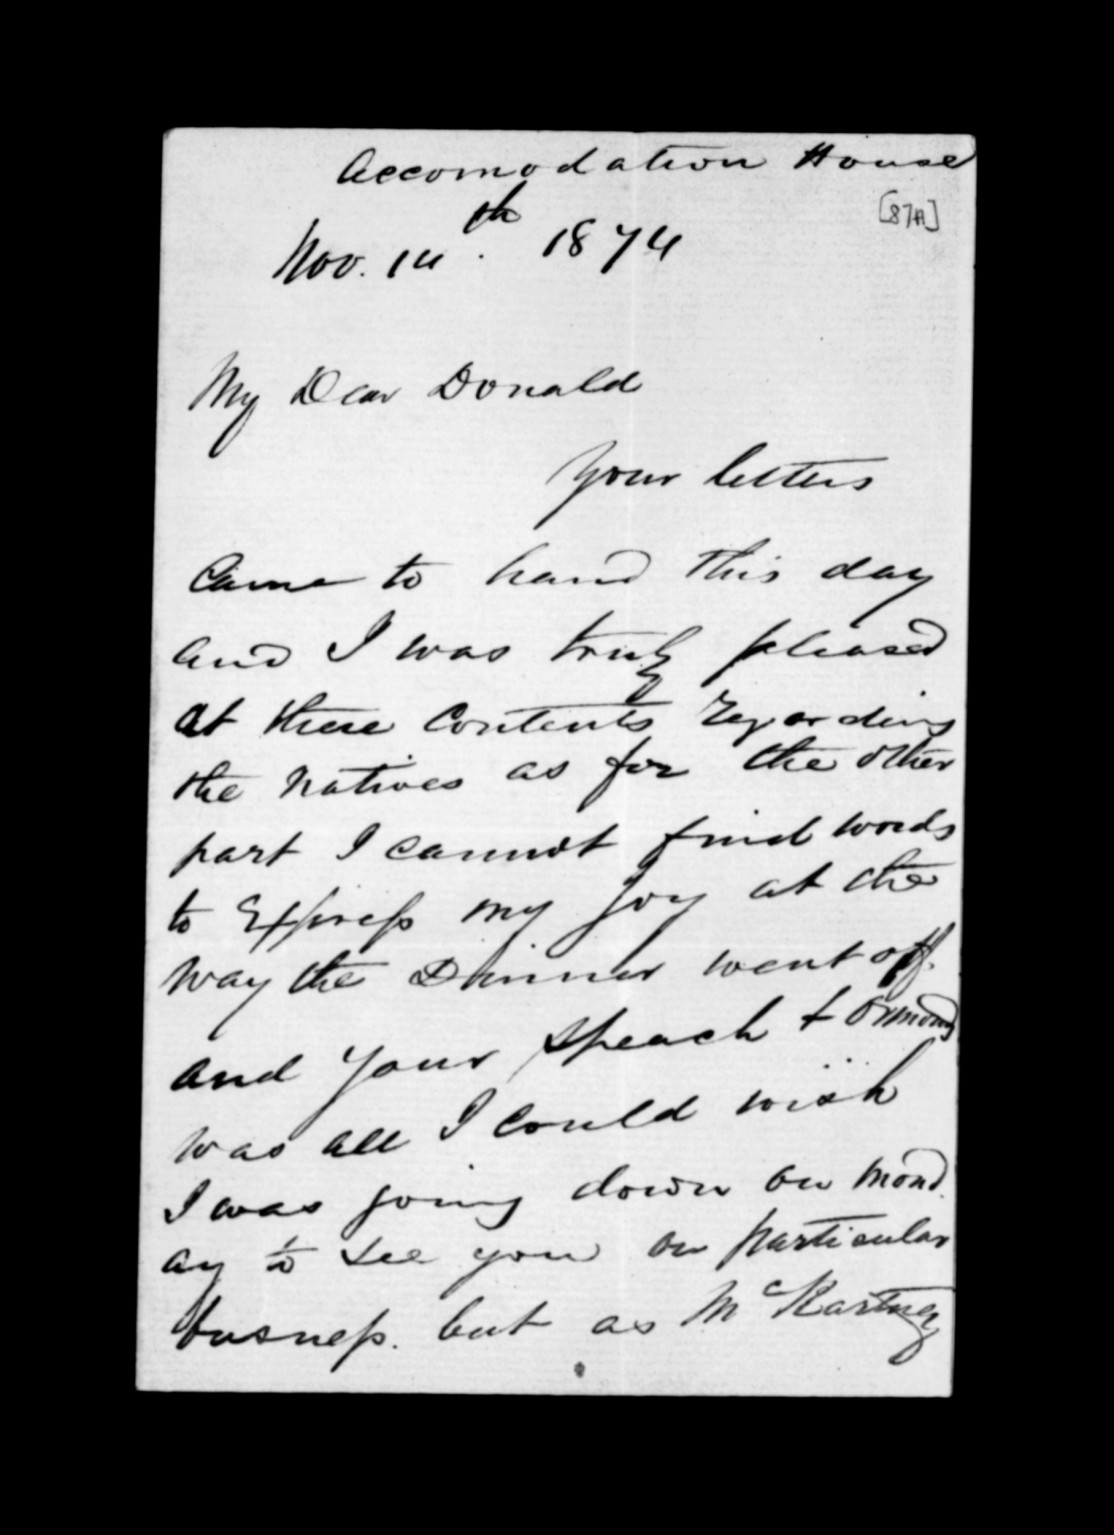 Accomodation House
[87A]
Nov. 14th. 1874
My Dear Donald
Your letters
Came to hand this day
and I was truly pleased
at there Contents regarding
the Natives as for the other
part I cannot find words
to Express my Joy at the
way the Dinner went off.
and your Speach & Ormond
was all I could wish
I was going down on Mond.
ay to see you on particular
busness. but as McKartney